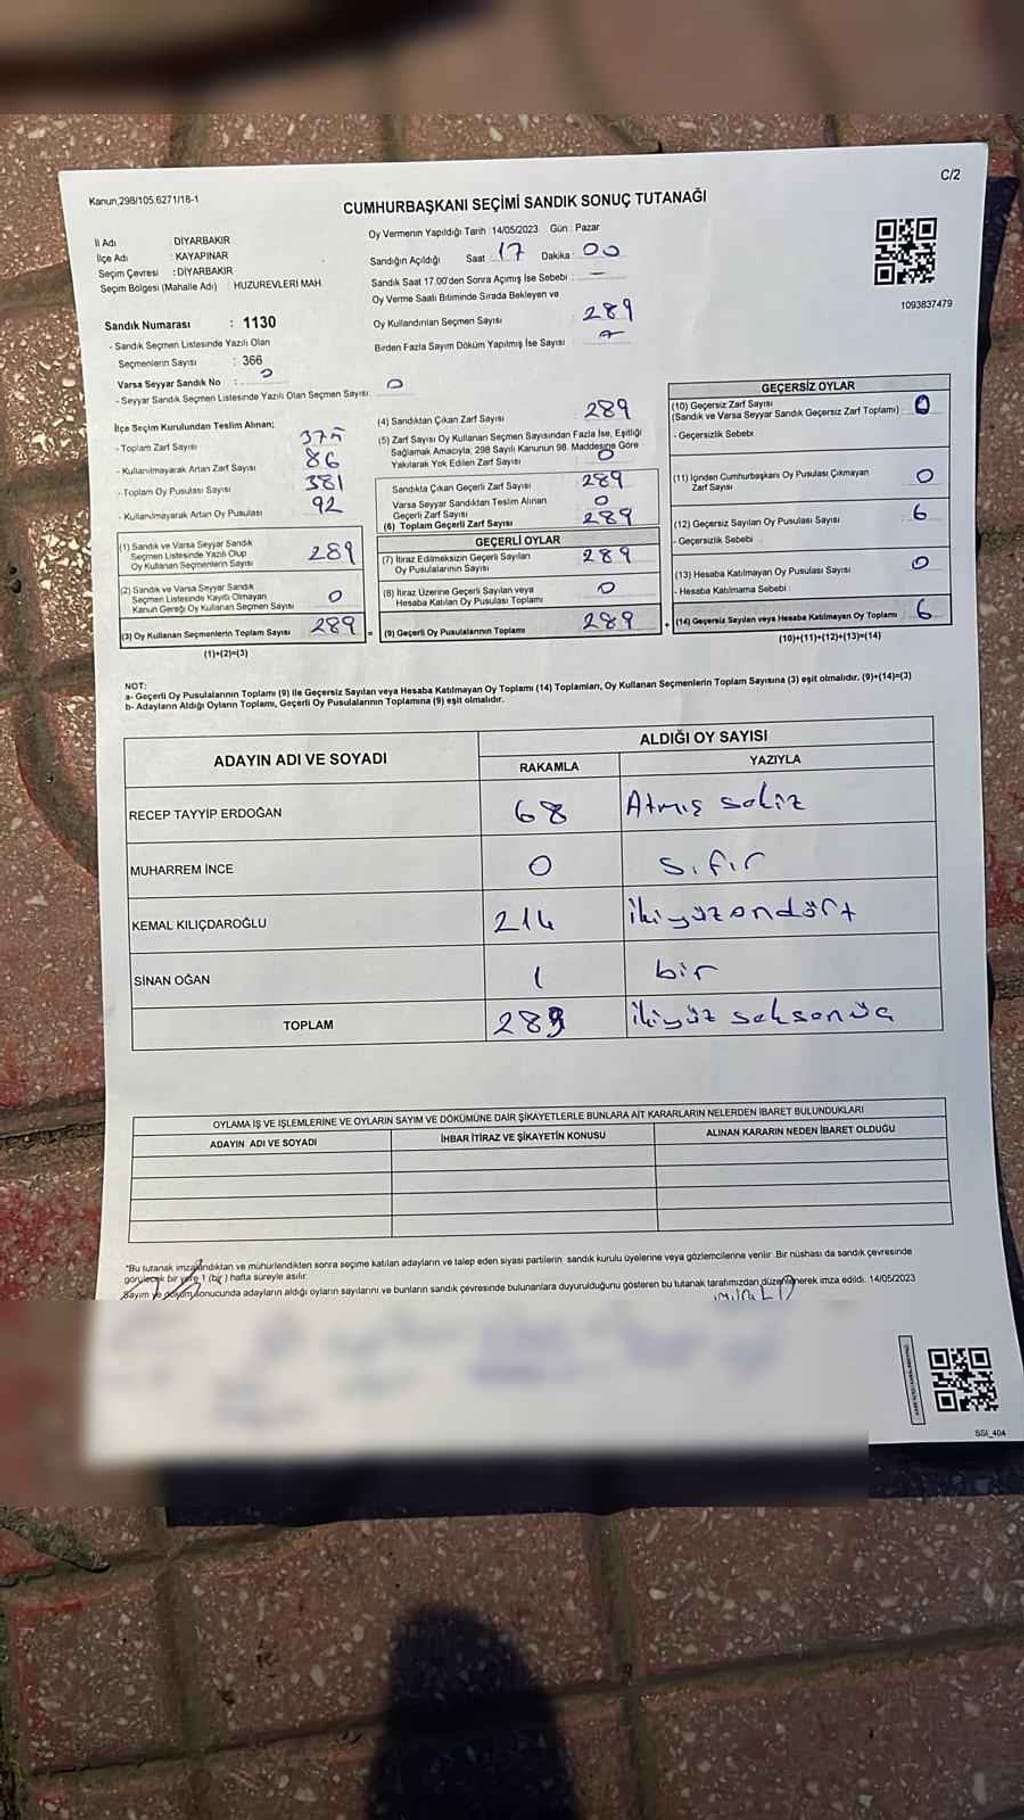 C/2
Kanun,298/105,6271/18-1
CUMHURBAŞKANI SEÇİMİ SANDIK SONUÇ TUTANAĞI
İl Adı DİYARBAKIR
İlçe Adı : KAYAPINAR
Seçim Çevresi : DİYARBAKIR
Seçim Bölgesi (Mahalle Adı) HUZUREVLERİ MAH.
Sandık Numarası : 1130
- Sandık Seçmen Listesinde Yazılı Olan
Seçmenlerin Sayısı : 366
Varsa Seyyar Sandık No : 0
- Seyyar Sandık Seçmen Listesinde Yazılı Olan Seçmen Sayısı: 0
Oy Vermenin Yapıldığı Tarih : 14/05/2023 Gün : Pazar
Sandığın Açıldığı Saat : 17 Dakika : 00
Sandık Saat 17.00'den Sonra Açımış İse Sebebi : —
Oy Verme Saati Bitiminde Sırada Bekleyen ve
Oy Kullandırılan Seçmen Sayısı 289
Birden Fazla Sayım Döküm Yapılmış İse Sayısı
1093837479
İlçe Seçim Kurulundan Teslim Alınan;
- Toplam Zarf Sayısı 375
- Kullanılmayarak Artan Zarf Sayısı 86
- Toplam Oy Pusulası Sayısı 381
- Kullanılmayarak Artan Oy Pusulası 92
(1) Sandık ve Varsa Seyyar Sandık
Seçmen Listesinde Yazılı Olup
Oy Kullanan Seçmenlerin Sayısı 289
(2) Sandık ve Varsa Seyyar Sandık
Seçmen Listesinde Kayıtlı Olmayan
Kanun Gereği Oy Kullanan Seçmen Sayısı 0
(3) Oy Kullanan Seçmenlerin Toplam Sayısı 289
(1)+(2)=(3)
(4) Sandıktan Çıkan Zarf Sayısı 289
(5) Zarf Sayısı Oy Kullanan Seçmen Sayısından Fazla İse, Eşitliği
Sağlamak Amacıyla; 298 Sayılı Kanunun 98. Maddesine Göre
Yakılarak Yok Edilen Zarf Sayısı 0
Sandıkta Çıkan Geçerli Zarf Sayısı 289
Varsa Seyyar Sandıktan Teslim Alınan
Geçerli Zarf Sayısı 0
(6) Toplam Geçerli Zarf Sayısı 289
GEÇERLİ OYLAR
(7) İtiraz Edilmeksizin Geçerli Sayılan
Oy Pusulalarının Sayısı 289
(8) İtiraz Üzerine Geçerli Sayılan veya
Hesaba Katılan Oy Pusulası Toplamı 0
= (9) Geçerli Oy Pusulalarının Toplamı 289
GEÇERSİZ OYLAR
(10) Geçersiz Zarf Sayısı
(Sandık ve Varsa Seyyar Sandık Geçersiz Zarf Toplamı) 0
- Geçersizlik Sebebi
(11) İçinden Cumhurbaşkanı Oy Pusulası Çıkmayan
Zarf Sayısı 0
(12) Geçersiz Sayılan Oy Pusulası Sayısı 6
- Geçersizlik Sebebi
(13) Hesaba Katılmayan Oy Pusulası Sayısı 0
- Hesaba Katılmama Sebebi
+ (14) Geçersiz Sayılan veya Hesaba Katılmayan Oy Toplamı 6
(10)+(11)+(12)+(13)=(14)
NOT:
a- Geçerli Oy Pusulalarının Toplamı (9) ile Geçersiz Sayılan veya Hesaba Katılmayan Oy Toplamı (14) Toplamları, Oy Kullanan Seçmenlerin Toplam Sayısına (3) eşit olmalıdır. (9)+(14)=(3)
b- Adayların Aldığı Oyların Toplamı, Geçerli Oy Pusulalarının Toplamına (9) eşit olmalıdır.
ADAYIN ADI VE SOYADI ALDIĞI OY SAYISI
RAKAMLA YAZIYLA
RECEP TAYYİP ERDOĞAN 68 Atmış sekiz
MUHARREM İNCE 0 sıfır
KEMAL KILIÇDAROĞLU 214 ikiyüzondört
SİNAN OĞAN 1 bir
TOPLAM 283 ikiyüz seksenüç
OYLAMA İŞ VE İŞLEMLERİNE VE OYLARIN SAYIM VE DÖKÜMÜNE DAİR ŞİKAYETLERLE BUNLARA AİT KARARLARIN NELERDEN İBARET BULUNDUKLARI
ADAYIN ADI VE SOYADI İHBAR İTİRAZ VE ŞİKAYETİN KONUSU ALINAN KARARIN NEDEN İBARET OLDUĞU
*Bu tutanak imzalandıktan ve mühürlendikten sonra seçime katılan adayların ve talep eden siyasi partilerin sandık kurulu üyelerine veya gözlemcilerine verilir. Bir nüshası da sandık çevresinde
görülecek bir yere 1 (bir) hafta süreyle asılır.
Sayım ve döküm sonucunda adayların aldığı oyların sayılarını ve bunların sandık çevresinde bulunanlara duyurulduğunu gösteren bu tutanak tarafımızdan düzenlenerek imza edildi. 14/05/2023
SSI_404